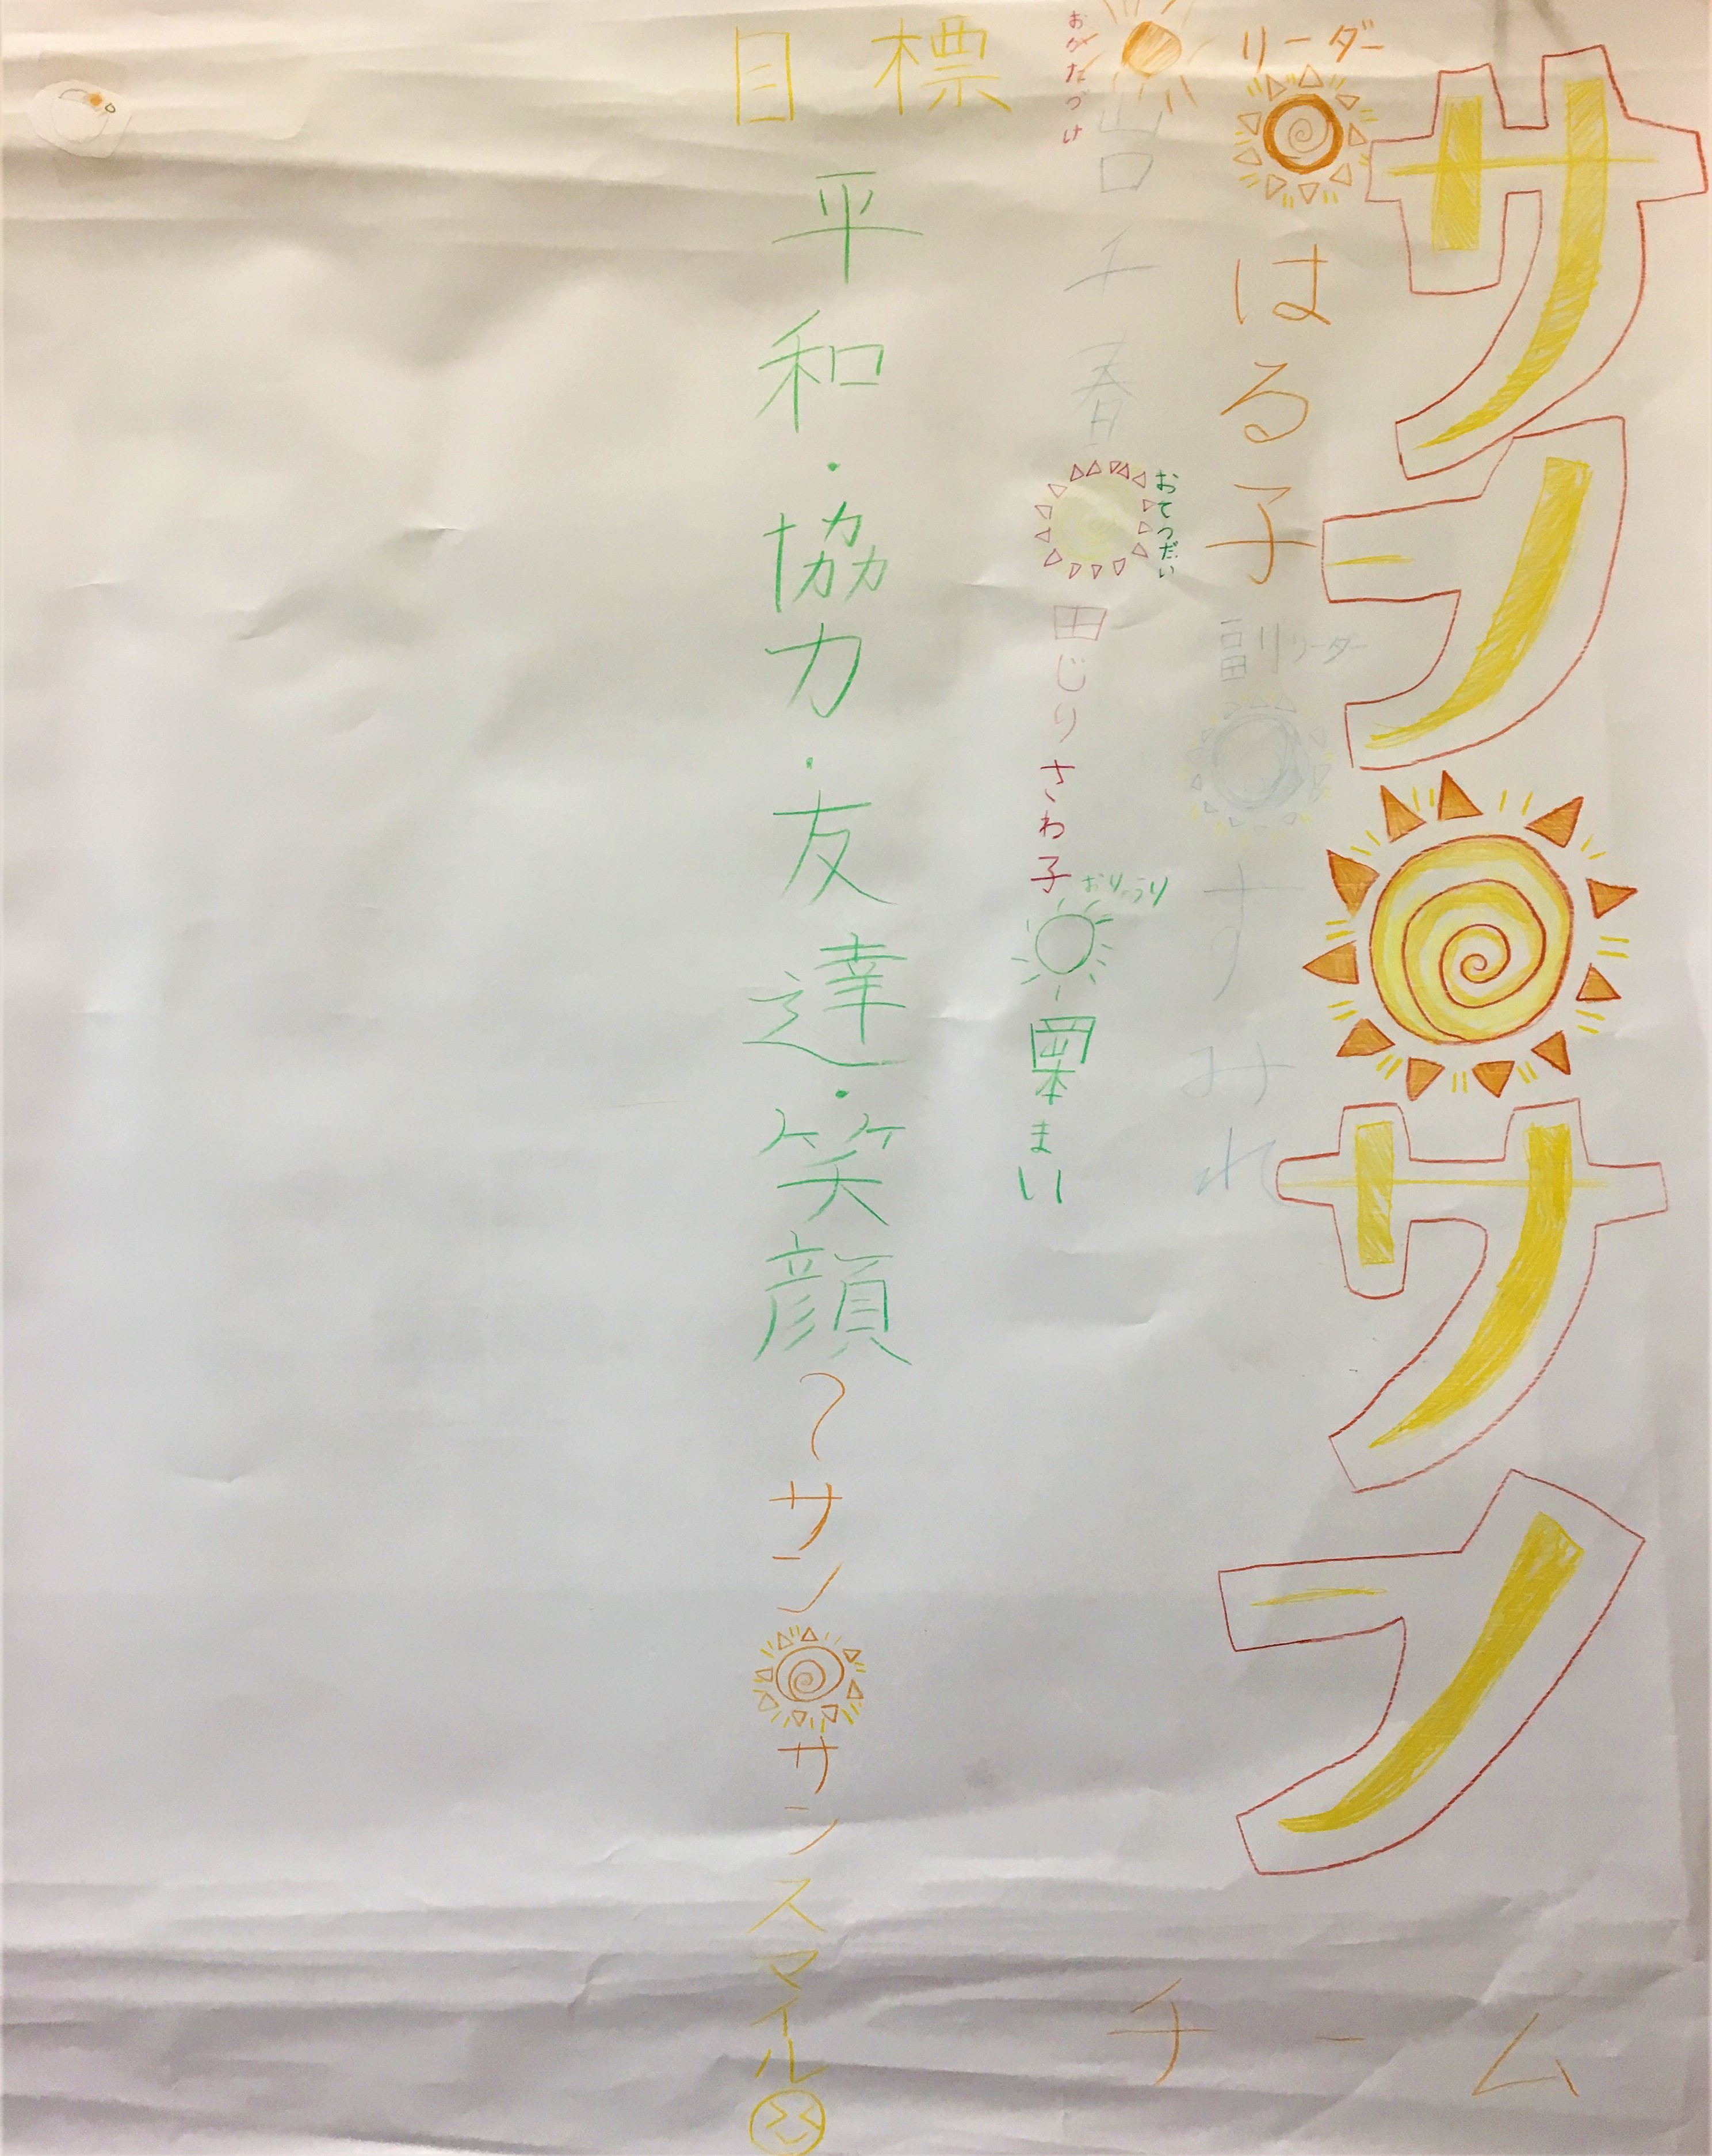 サン サン
チーム
リーダー
はる子
副リーダー
すみれ
おかたづけ
山口千春
おてつだい
田じりさわ子
おりょうり
岡本まい
目標
平和・協力・友達・笑顔
〜サンサンスマイル